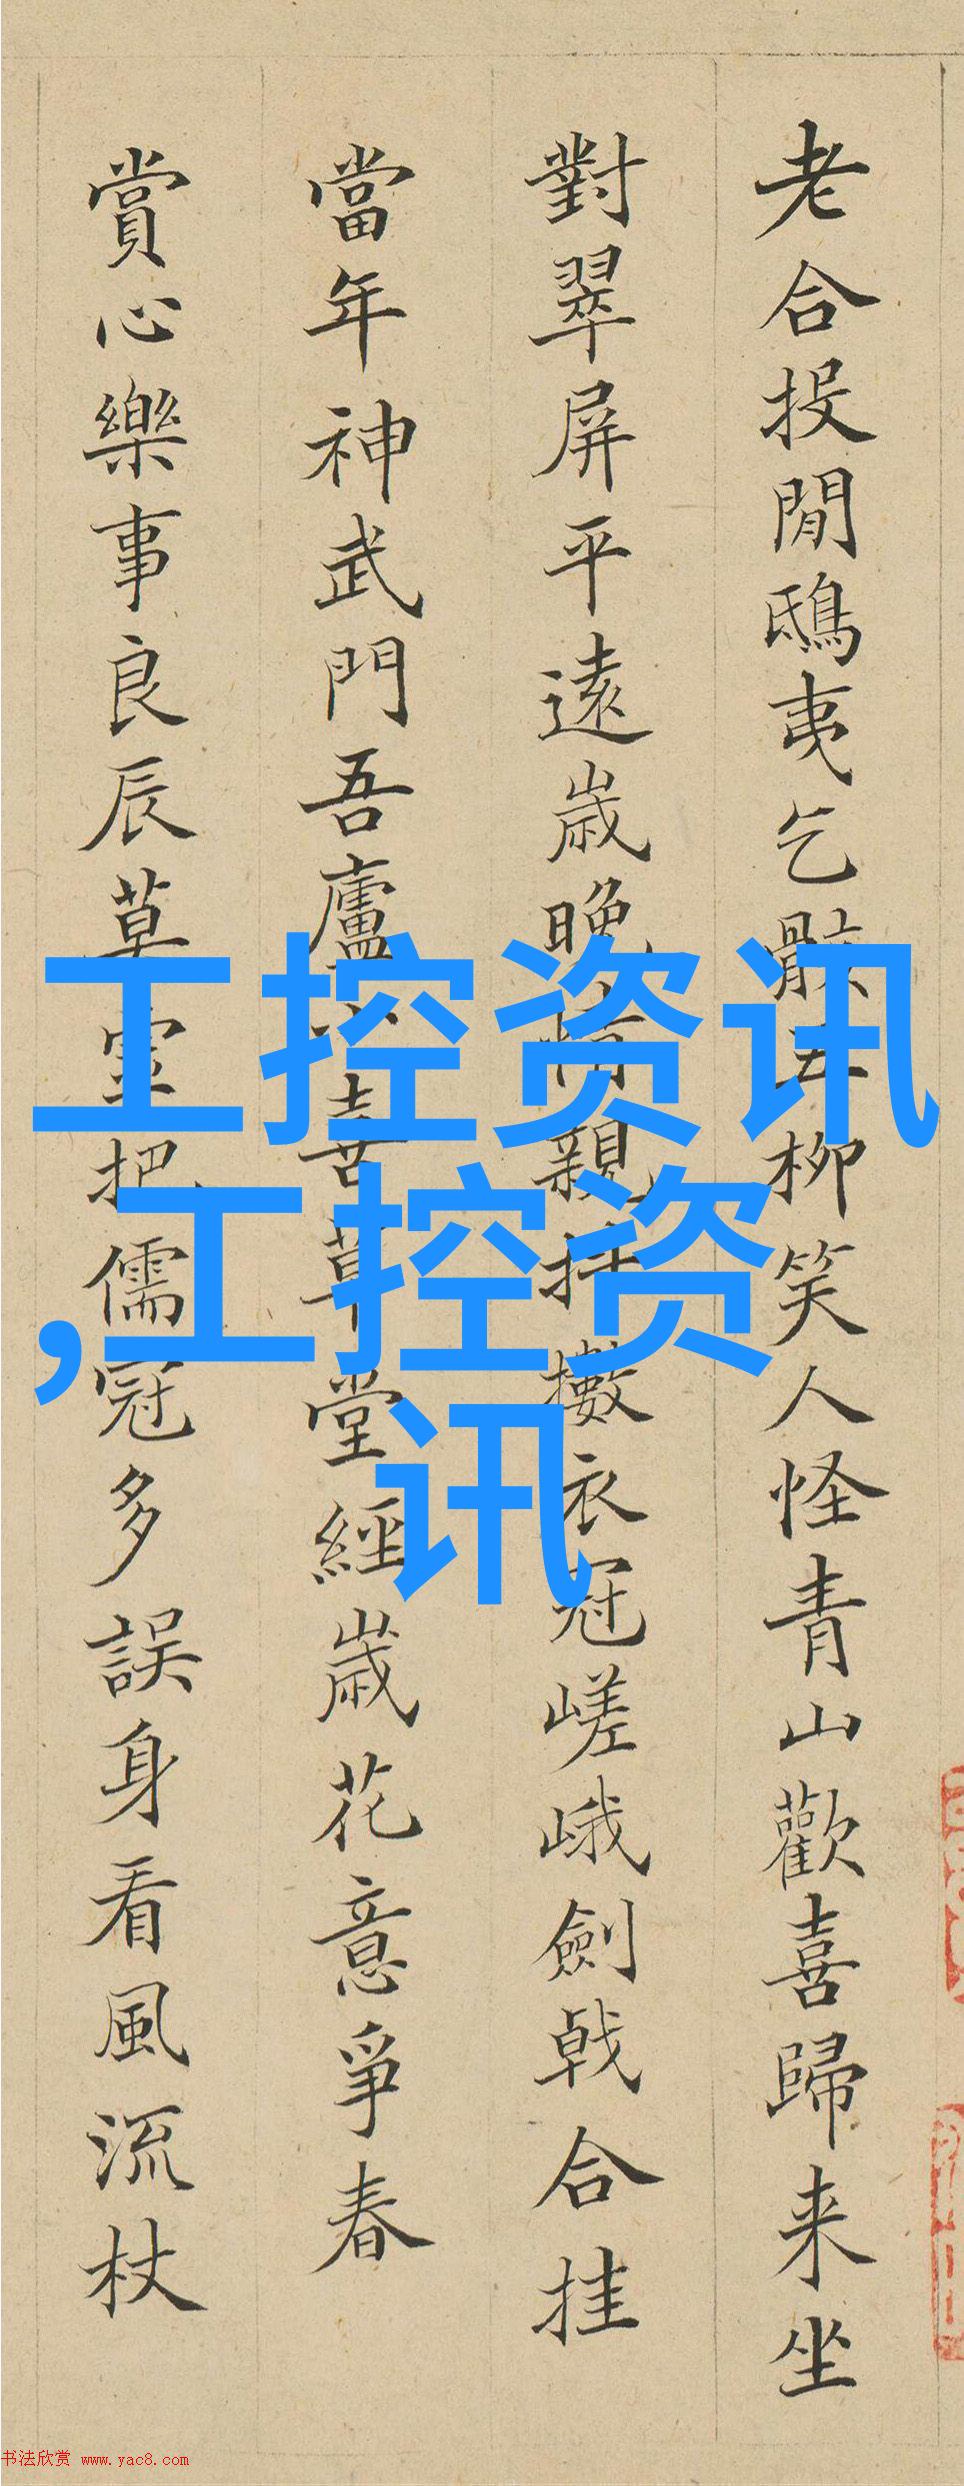 老合投閒鴟夷乞骸五柳笑人怪青山歡喜歸来坐
對翠屏平遠歳晚情親抖擻衣冠嵯峨劍戟合挂
當年神武門吾廬喜草堂經歳花意爭春
賞心樂事良辰草把儒冠多誤身看風流杖
工控资讯
,工控资
讯
书法欣赏 www.yac8.com